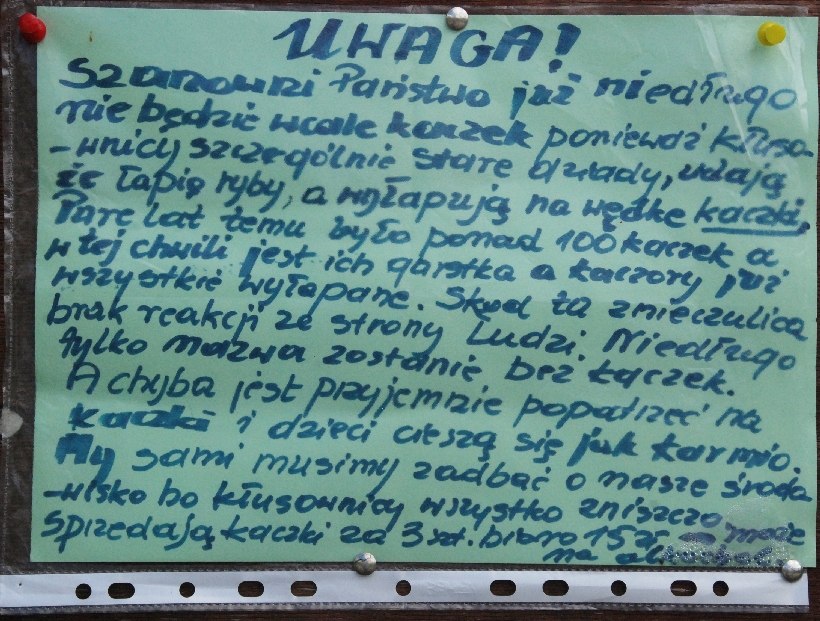 UWAGA!
Szanowni Państwo już niedługo
nie będzie wcale kaczek ponieważ kłuso-
-wnicy szczególnie stare dziady, udają
że łapią ryby, a wyłapują na wędkę kaczki.
Parę lat temu było ponad 100 kaczek a
w tej chwili jest ich garstka a kaczory już
wszystkie wyłapane. Skąd ta znieczulica
brak reakcji ze strony Ludzi. Niedługo
tylko nazwa zostanie bez kaczek.
A chyba jest przyjemnie popatrzeć na
kaczki i dzieci cieszą się jak karmią.
My sami musimy zadbać o nasze środo
-wisko bo kłusownicy wszystko zniszczą
Sprzedają kaczki za 3 szt. biorą 15 zł
na